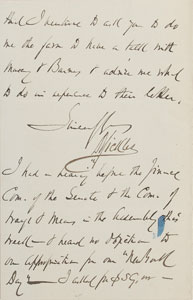 And I venture to ask you to do
me the favor to have a talk with
& advise me what
to do in reference to their letter.
Sincerely
Sickles
I had a hearing before the Finance
Com. of the Senate & the Com. of
Ways & Means in the Assembly this
week - I heard no opposition to
our appropriation for our "New York
Day" - I asked for